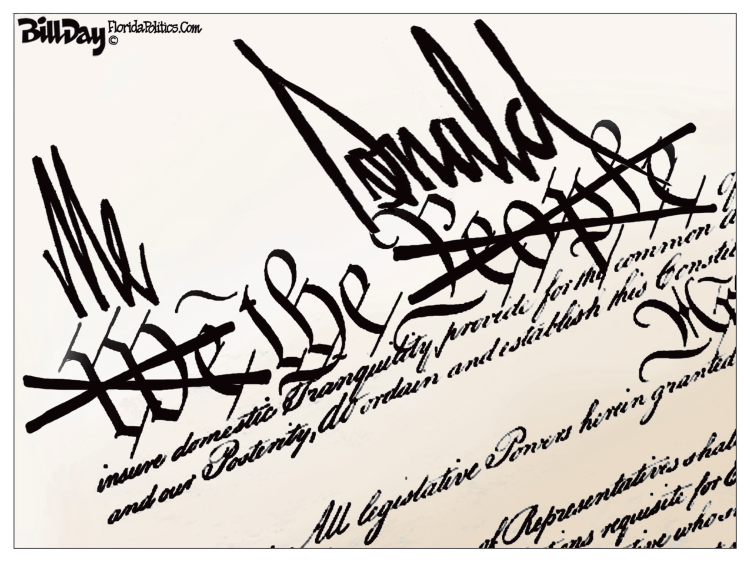 BillDay FloridaPolitics.Com
©
Me Donald
We the People,
insure domestic Tranquility, provide for the common
and our Posterity, do ordain and establish this
All legislative Powers herein granted
of Representatives shall
requisite for